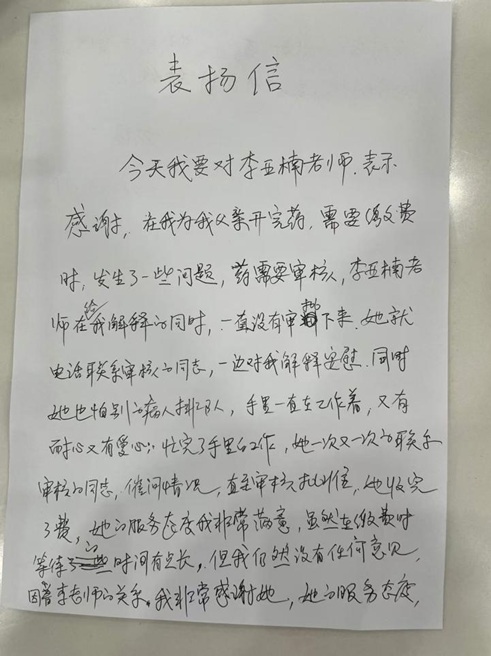 表扬信
今天我要对李亚楠老师.表示
感谢,在我为我父亲开完药,需要缴费
时,发生了一些问题,药需要审核,李亚楠老
师在给我解释的同时,一直没有审批下来.她就
电话联系审核的同志,一边对我解释安慰.同时
她也怕别的病人排队,手里一直在工作着,又有
耐心又有爱心:忙完了手里的工作,她一次又一次的联系
审核的同志,催问情况,直至审核到位,她收完
了费,她的服务态度我非常满意,虽然在缴费时
等待的时间有点长,但我仍然没有任何意见
因着李老师的关系.我非常感谢她,她的服务态度,